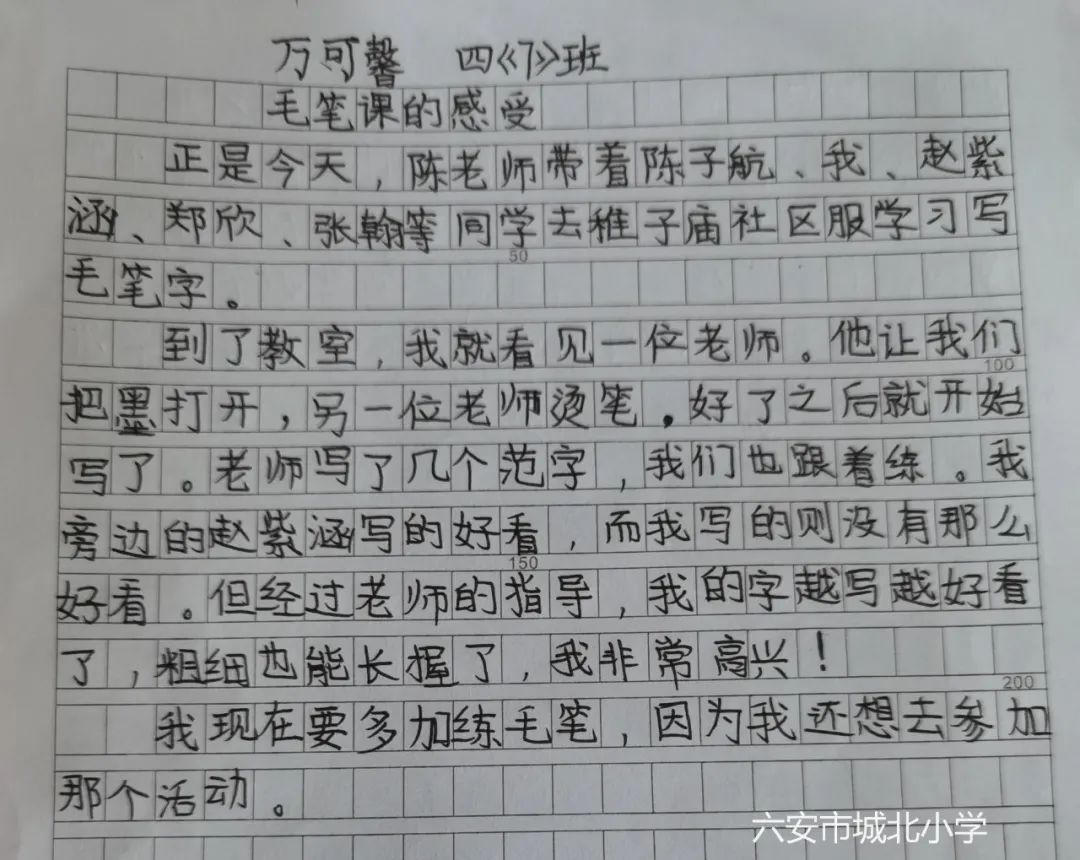 万可馨 四《7》班
毛笔课的感受
正是今天，陈老师带着陈子航、我、赵紫
涵、郑欣、张翰等同学去稚子庙社区服学习写
50
毛笔字。
到了教室，我就看见一位老师。他让我们
100
把墨打开，另一位老师烫笔。好了之后就开始
写了。老师写了几个范字，我们也跟着练。我
旁边的赵紫涵写的好看，而我写的则没有那么
150
好看。但经过老师的指导，我的字越写越好看
了，粗细也能长握了，我非常高兴！
200
我现在要多加练毛笔，因为我还想去参加
那个活动。
六安市城北小学